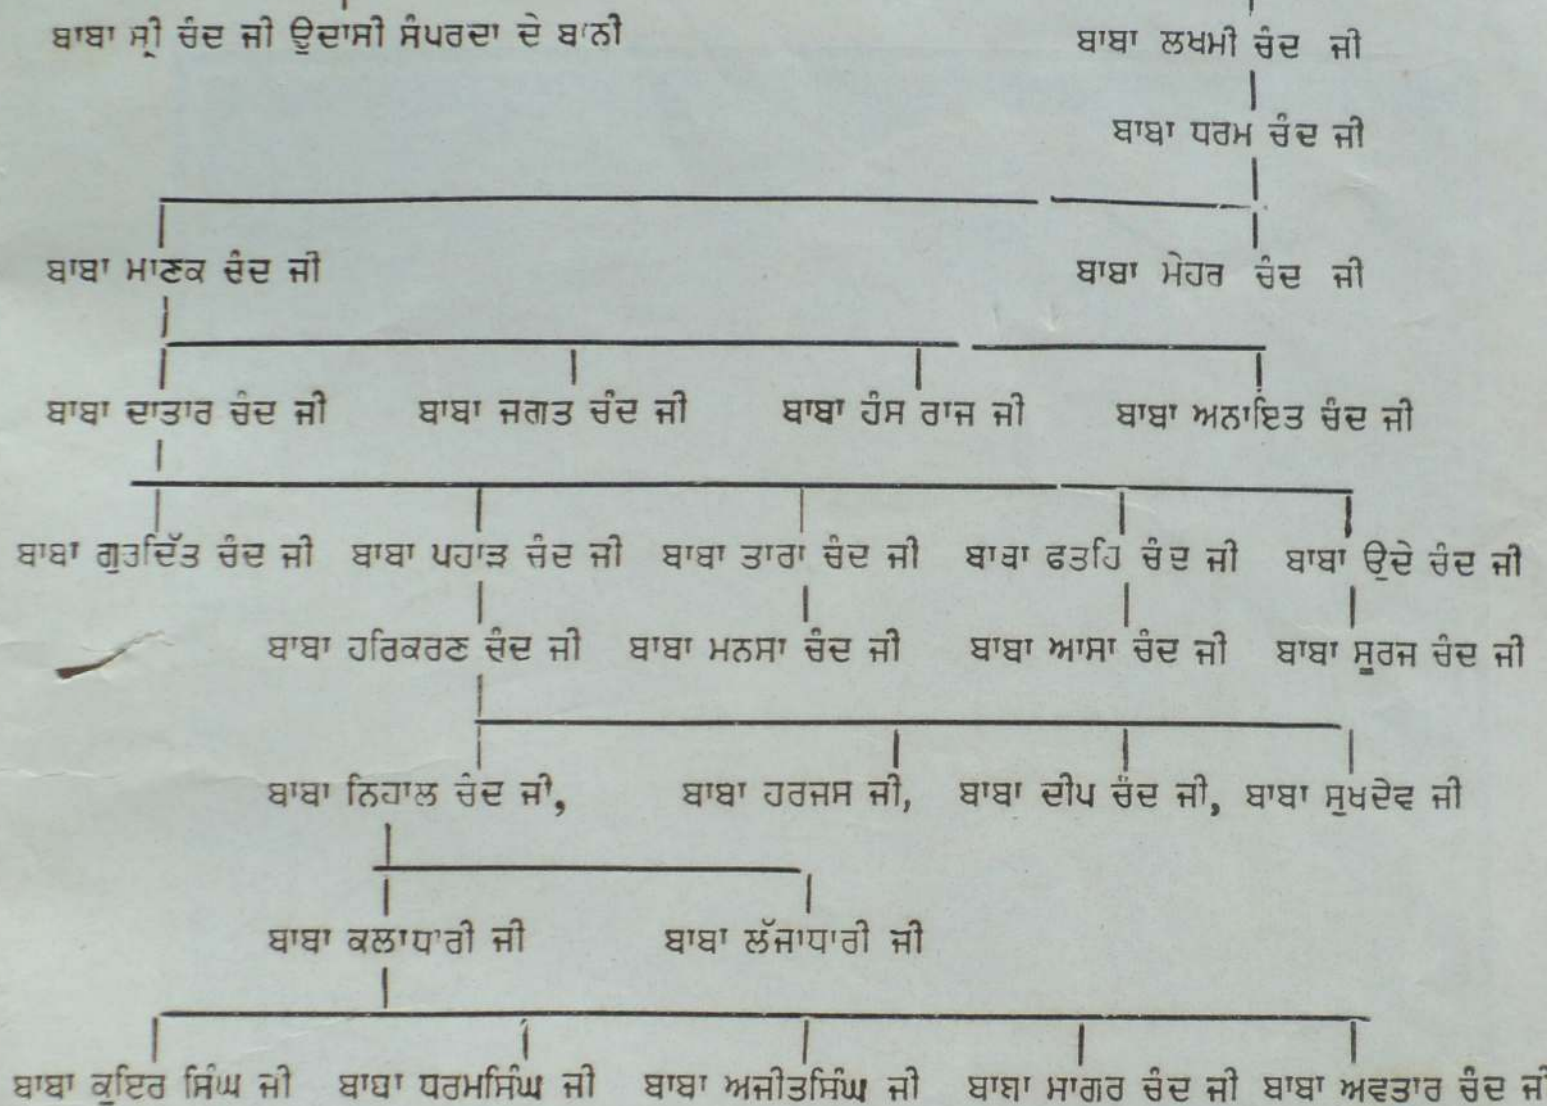 ਬਾਬਾ ਸ੍ਰੀ ਚੰਦ ਜੀ ਉਦਾਸੀ ਸੰਪਰਦਾ ਦੇ ਬਾਨੀ ਬਾਬਾ ਲਖਮੀ ਚੰਦ ਜੀ
ਬਾਬਾ ਧਰਮ ਚੰਦ ਜੀ
ਬਾਬਾ ਮਾਣਕ ਚੰਦ ਜੀ ਬਾਬਾ ਮੇਹਰ ਚੰਦ ਜੀ
ਬਾਬਾ ਦਾਤਾਰ ਚੰਦ ਜੀ ਬਾਬਾ ਜਗਤ ਚੰਦ ਜੀ ਬਾਬਾ ਹੰਸ ਰਾਜ ਜੀ ਬਾਬਾ ਅਨਾਇਤ ਚੰਦ ਜੀ
ਬਾਬਾ ਗੁਤਦਿੱਤ ਚੰਦ ਜੀ ਬਾਬਾ ਪਹਾੜ ਚੰਦ ਜੀ ਬਾਬਾ ਤਾਰਾ ਚੰਦ ਜੀ ਬਾਬਾ ਫਤਹਿ ਚੰਦ ਜੀ ਬਾਬਾ ਉਦੇ ਚੰਦ ਜੀ
ਬਾਬਾ ਹਰਿਕਰਣ ਚੰਦ ਜੀ ਬਾਬਾ ਮਨਸਾ ਚੰਦ ਜੀ ਬਾਬਾ ਆਸਾ ਚੰਦ ਜੀ ਬਾਬਾ ਸੂਰਜ ਚੰਦ ਜੀ
ਬਾਬਾ ਨਿਹਾਲ ਚੰਦ ਜੀ, ਬਾਬਾ ਹਰਜਸ ਜੀ, ਬਾਬਾ ਦੀਪ ਚੰਦ ਜੀ, ਬਾਬਾ ਸੁਖਦੇਵ ਜੀ
ਬਾਬਾ ਕਲਾਧਾਰੀ ਜੀ ਬਾਬਾ ਲੱਜਾਧਾਰੀ ਜੀ
ਬਾਬਾ ਕੁਇਰ ਸਿੰਘ ਜੀ ਬਾਬਾ ਧਰਮਸਿੰਘ ਜੀ ਬਾਬਾ ਅਜੀਤਸਿੰਘ ਜੀ ਬਾਬਾ ਸਾਗਰ ਚੰਦ ਜੀ ਬਾਬਾ ਅਵਤਾਰ ਚੰਦ ਜੀ